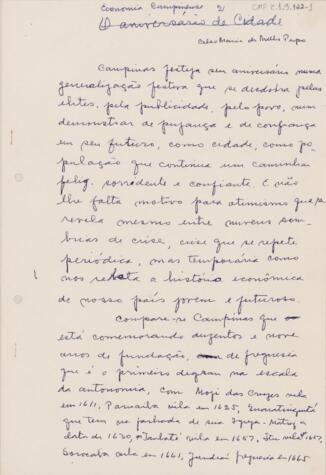 Economia Campinense 2)
CMP 2.1.9.122-1
O aniversário de Cidade
Celso Maria de Mello Pupo
Campinas festeja seu aniversário numa
generalização festiva que se desdobra pelas
elites, pela publicidade, pelo povo, num
demonstrar de pujança e de confiança
em seu futuro, como cidade, como po-
pulação que continua um caminhar
feliz, sorridente e confiante. E não
lhe falta motivo para otimismo que se
revela mesmo entre nuvens som-
brias de crise, crise que se repete
periódica, mas temporária como
nos relata a história econômica
de nosso país jovem e futuroso.
Compare-se Campinas que
está comemorando duzentos e nove
anos de fundação, de freguesia
que é o primeiro degrau na escala
da autonomia, com Mogi das Cruzes vila
em 1611, Parnaíba vila em 1625, Guaratinguetá
que tem na fachada de sua Igreja-Matriz a
data de 1630, Taubaté vila em 1657, Itu vila 1657,
Sorocaba vila em 1661, Jundiaí freguesia em 1665